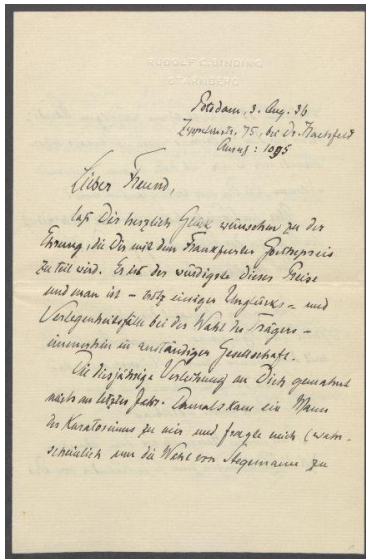 RUDOLF G. BINDING
STARNBERG
Potsdam, 3. Aug. 36
75, bei Dr.
Anruf: 1095
Lieber Freund,
lass Dir herzlich Glück wünschen zu der
Ehrung, die Dir mit dem Frankfurter Goethepreis
zu teil wird. Er ist der würdigste dieser Preise
und man ist – trotz einiger Unglücks- und
Verlegenheitsfälle bei der Wahl des Trägers –
immerhin in anständiger Gesellschaft.
Die diesjährige Verleihung an Dich gemahnt
mich an letztes Jahr. Damals kam ein Mann
des Kuratoriums zu mir und fragte mich (wahr-
scheinlich um die Wahl von Stegemann zu